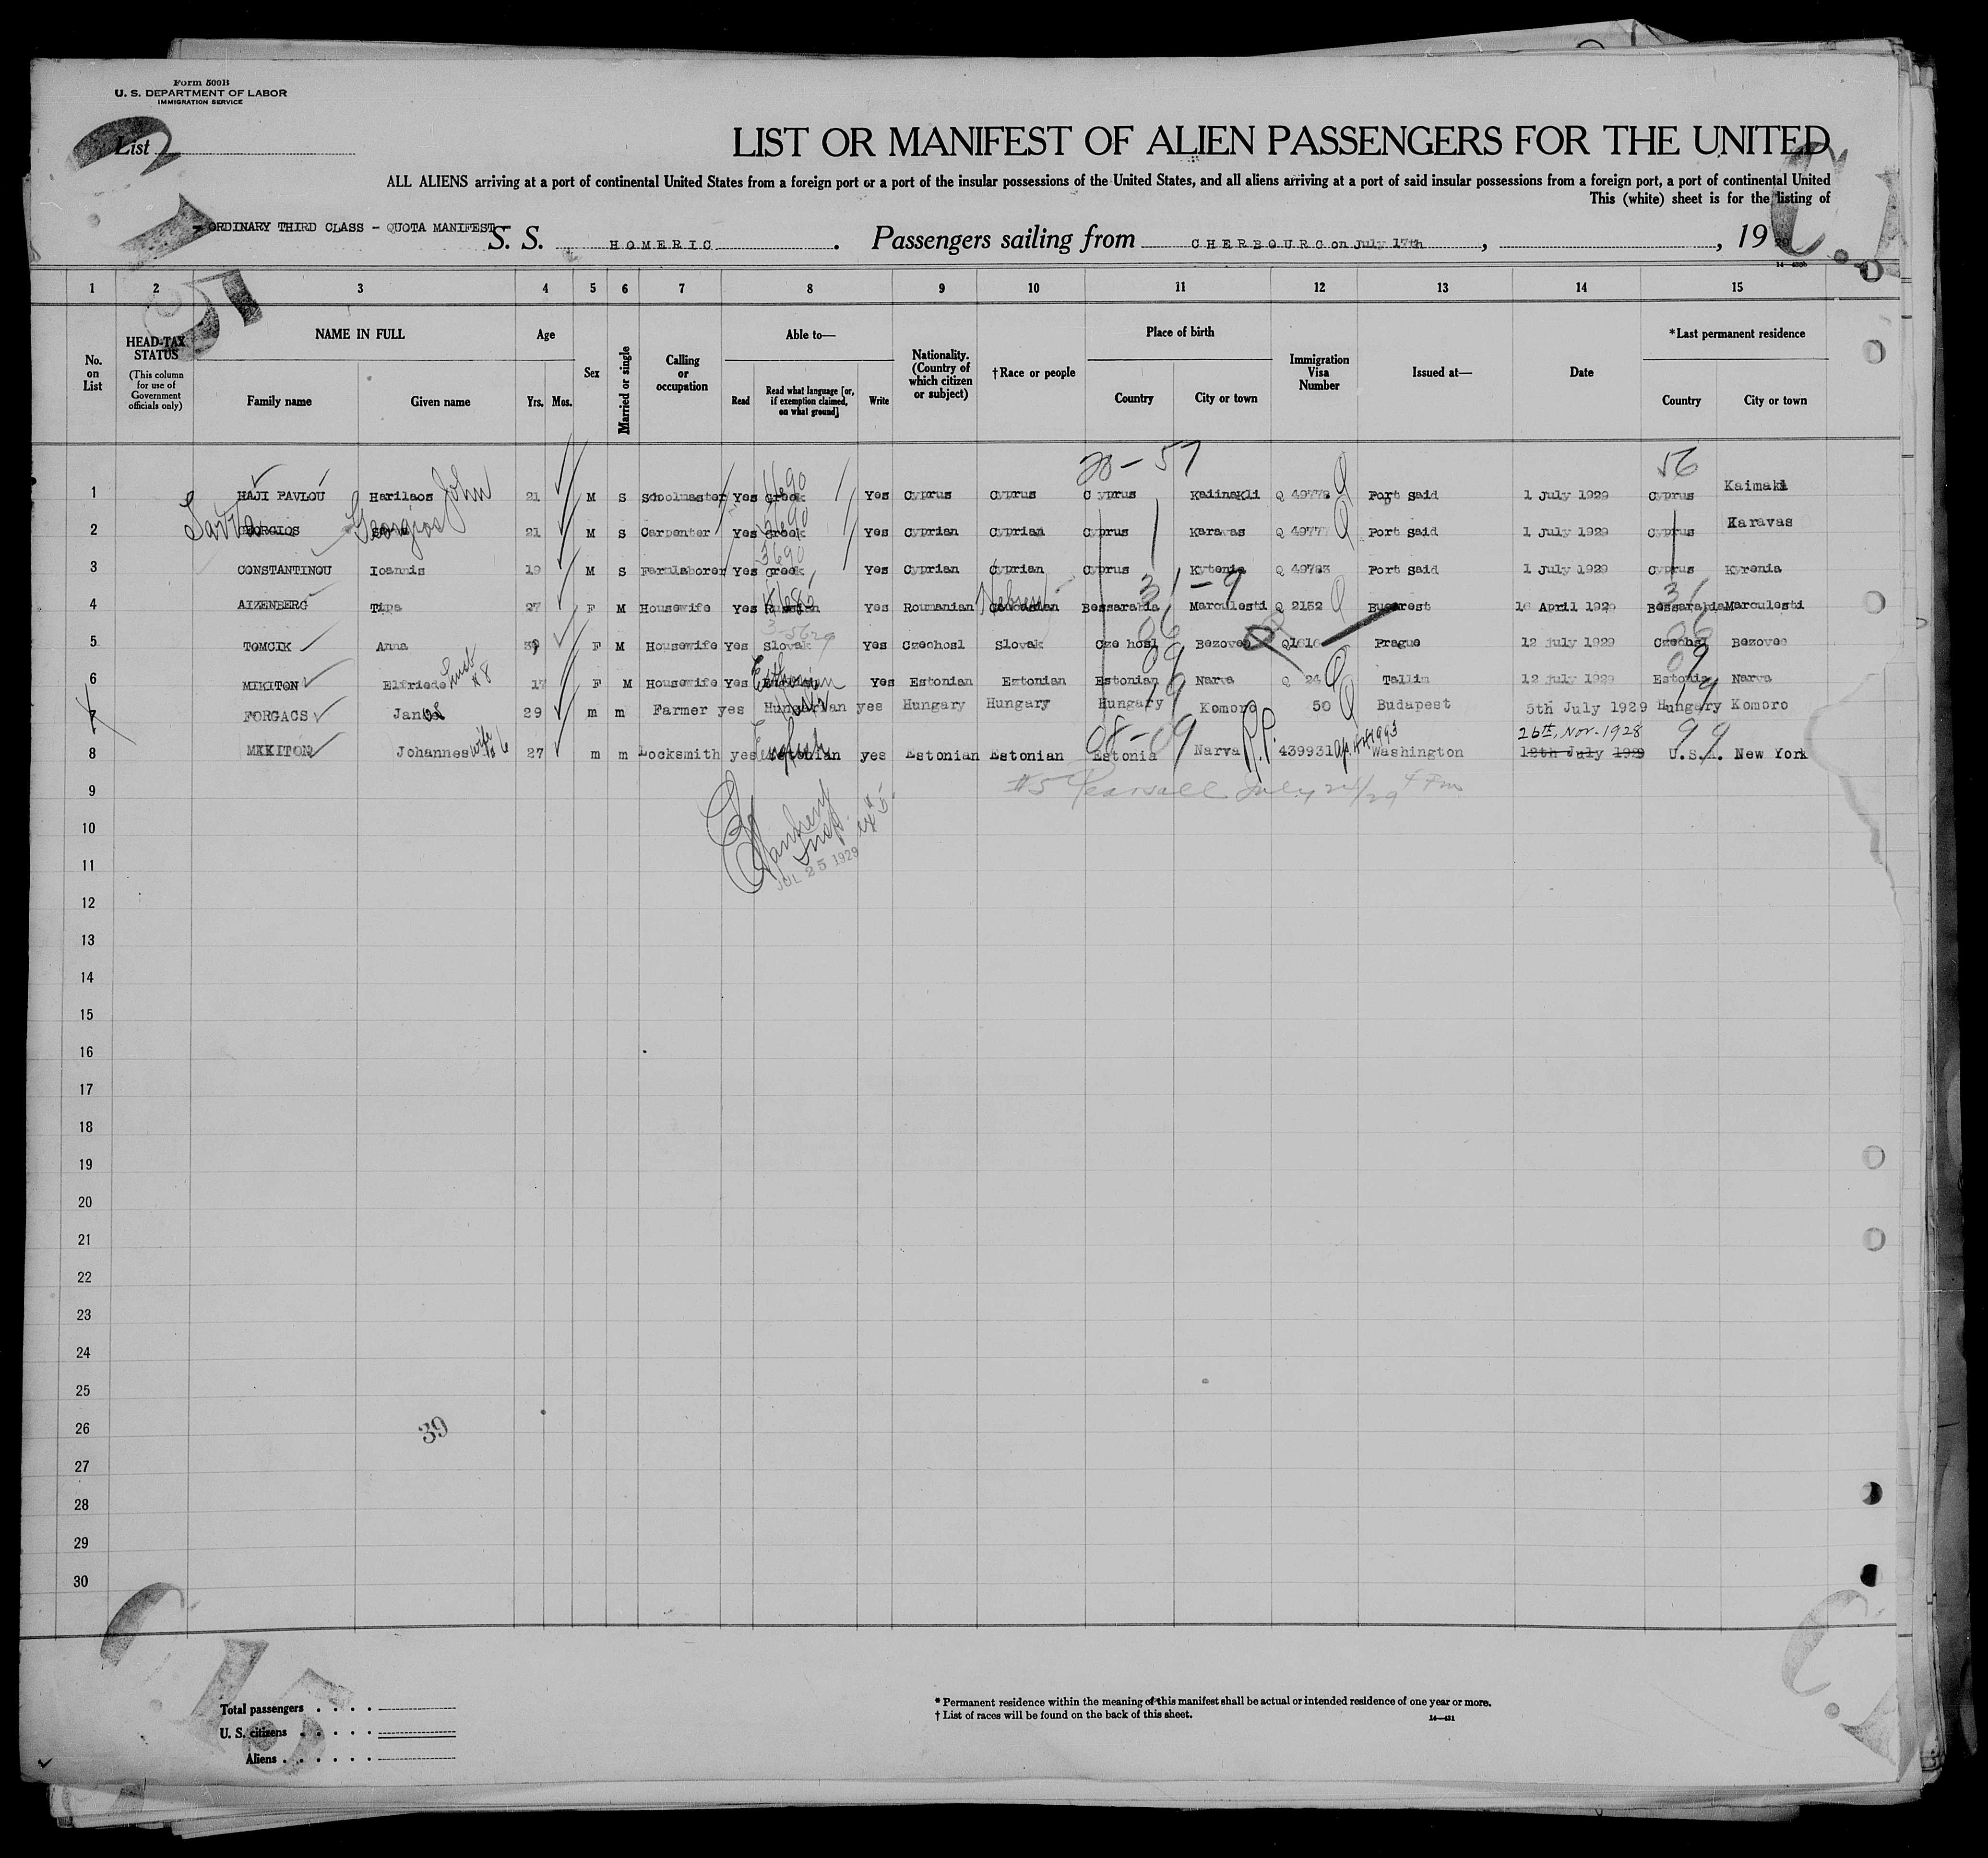 Form 500B
U. S. DEPARTMENT OF LABOR
IMMIGRATION SERVICE
List
LIST OR MANIFEST OF ALIEN PASSENGERS FOR THE UNITED
ALL ALIENS arriving at a port of continental United States from a foreign port or a port of the insular possessions of the United States, and all aliens arriving at a port of said insular possessions from a foreign port, a port of continental United
This (white) sheet is for the listing of
- ORDINARY THIRD CLASS - QUOTA MANIFEST -
S. S. HOMERIC. Passengers sailing from CHERBOURG on July 17th, , 19
1 2 3 4 5 6 7 8 9 10 11 12 13 14 15
No. on List
HEAD-TAX STATUS (This column for use of Government officials only)
NAME IN FULL Family name Given name
Age Yrs. Mos.
Sex
Married or single
Calling or occupation
Able to— Read Read what language [or, if exemption claimed, on what ground] Write
Nationality. (Country of which citizen or subject)
†Race or people
Place of birth Country City or town
Immigration Visa Number
Issued at—
Date
*Last permanent residence Country City or town
20 - 57 56
1 HAJI PAVLOU Harilaos John 21 M S Schoolmaster Yes Greek Yes Cyprus Cyprus Cyprus Kaiinakli Q 49772 Port Said 1 July 1929 Cyprus Kaimaki
2 Savva GEORGIOS Georgios 21 M S Carpenter Yes Greek Yes Cyprian Cyprian Cyprus Karavas Q 49777 Port Said 1 July 1929 Cyprus Karavas
3 CONSTANTINOU Ioannis 19 M S Farmlaborer Yes Greek Yes Cyprian Cyprian Cyprus Kytenia Q 49783 Port Said 1 July 1929 Cyprus Kyrenia
4 AIZENBERG Tipa 27 F M Housewife Yes Russian Yes Roumanian Hebrew Bessarabia Marculesti Q 2152 Bucarest 16 April 1929 Bessarabia Marculesti
5 TOMCIK Anna 39 F M Housewife Yes Slovak Yes Czechosl Slovak Czechosl Bezovee Q1610 Prague 12 July 1929 Czechsl Bezovee
6 MIKITON Elfriede husb #8 17 F M Housewife Yes Esthonian Yes Estonian Estonian Estonian Narva Q 24 Tallin 12 July 1929 Estonia Narva
7 FORGACS Janos 29 m m Farmer yes Hungarian yes Hungary Hungary Hungary Komoro 50 Budapest 5th July 1929 Hungary Komoro
26th, Nov. 1928
8 MIKITON Johannes wife #6 27 m m Locksmith yes English yes Estonian Estonian Estonia Narva R.P. 439931 Washington 12th July 1929 U.S.A. New York
9 #5 Pearsall July 24/29 4 Pm
10
11 JUL 25 1929
12
13
14
15
16
17
18
19
20
21
22
23
24
25
26 39
27
28
29
30
Total passengers
U. S. citizens
Aliens
* Permanent residence within the meaning of this manifest shall be actual or intended residence of one year or more.
† List of races will be found on the back of this sheet.
14—431